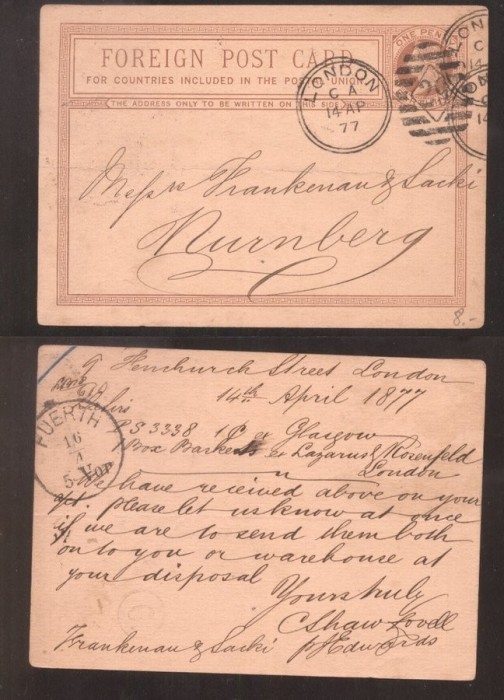 FOREIGN POST CARD
FOR COUNTRIES INCLUDED IN THE POSTAL UNION.
THE ADDRESS ONLY TO BE WRITTEN ON THIS SIDE.
ONE PENNY
LONDON
C A
14 AP
77
Messrs Frankenau & Sacki
Nurnberg
8.-
9 Fenchurch Street London
14th April 1877
FUERTH
16
4
5
PS 3338 1 C ex Glasgow
Box ex Lazarus & Rosenfeld
London
We have received above on your
a/c. Please let us know at once
if we are to send them both
on to you or warehouse at
your disposal
Yours truly
C Shaw Lovell
p J Edwards
Frankenau & Sacki